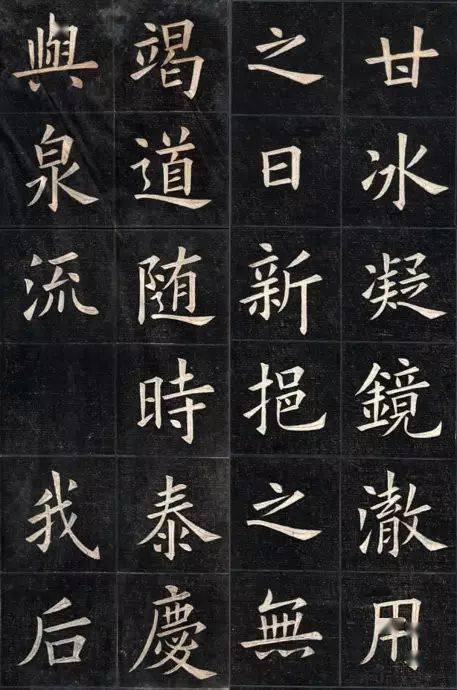 甘冰凝鏡澈用
之日新挹之無
竭道随時泰慶
與泉流 我后